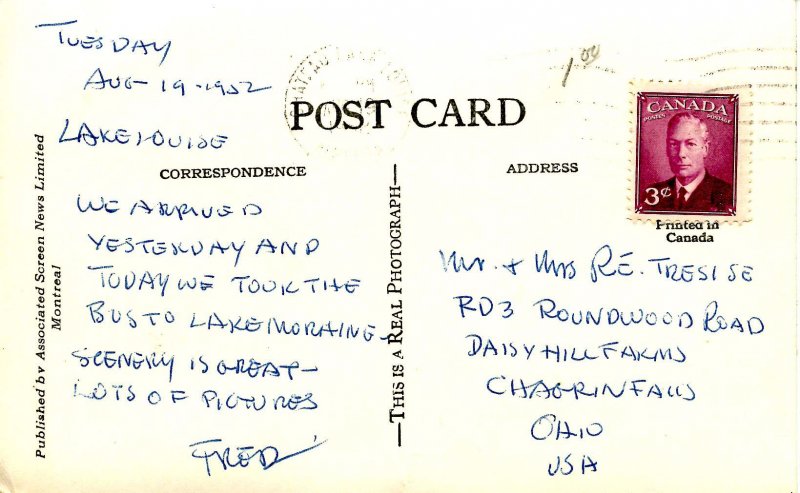 TUESDAY
AUG-19-1952
LAKE LOUISE
POST CARD
CORRESPONDENCE
WE ARRIVED
YESTERDAY AND
TODAY WE TOOK THE
BUS TO LAKE MORAINE-
SCENERY IS GREAT-
LOTS OF PICTURES
FRED
Published by Associated Screen News Limited
Montreal
—THIS IS A REAL PHOTOGRAPH—
1.00
ADDRESS
CANADA
POSTES POSTAGE
3¢
Printed in
Canada
Mr. + Mrs R.E. TRESISE
RD3 ROUNDWOOD ROAD
DAISY HILL FARMS
CHAGRIN FALLS
OHIO
USA